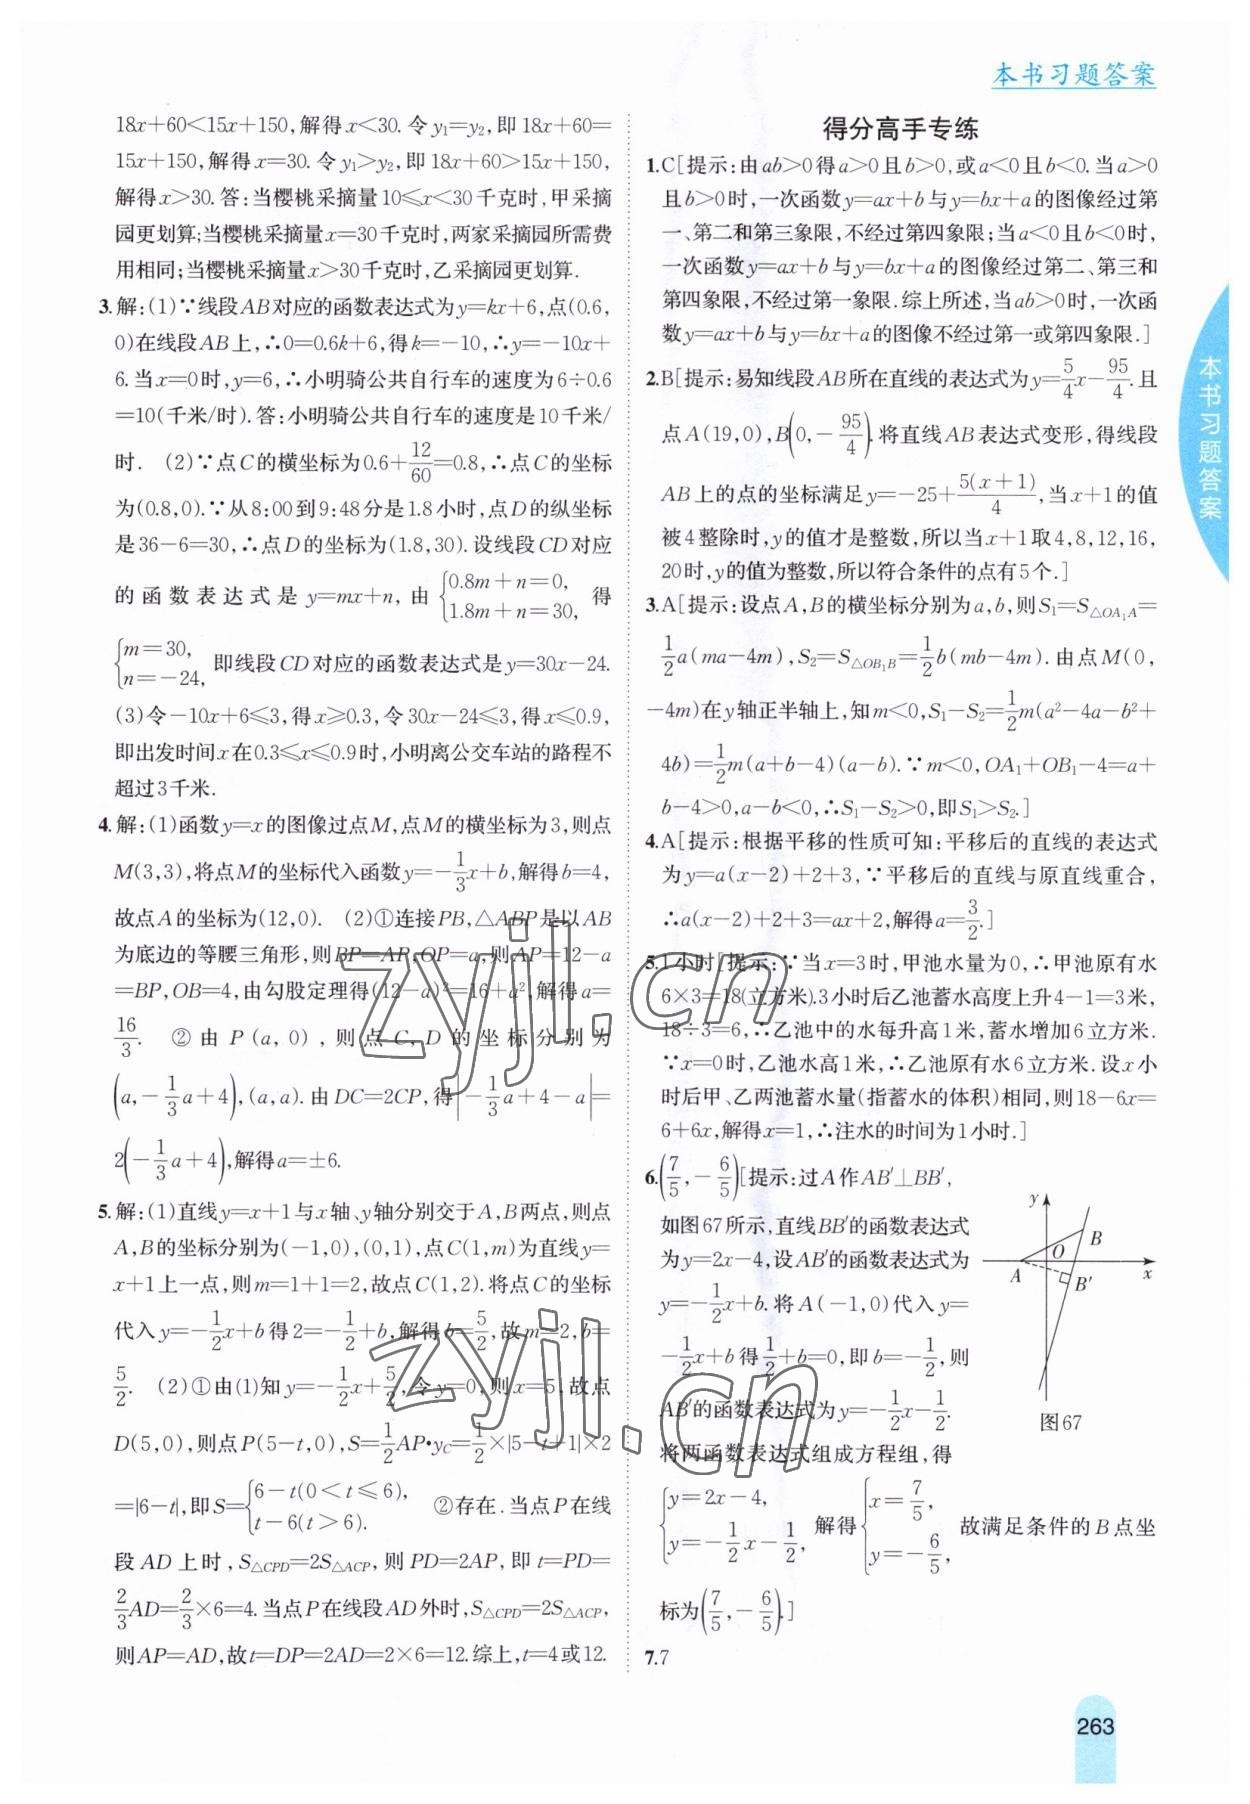 本书习题答案
18x+60<15x+150,解得x<30.令y₁=y₂,即18x+60=
15x+150,解得x=30.令y₁>y₂,即18x+60>15x+150,
解得x>30.答:当樱桃采摘量10≤x<30千克时,甲采摘
园更划算;当樱桃采摘量x=30千克时,两家采摘园所需费
用相同;当樱桃采摘量x>30千克时,乙采摘园更划算.
3.解:(1)∵线段AB对应的函数表达式为y=kx+6,点(0.6,
0)在线段AB上,∴0=0.6k+6,得k=-10,∴y=-10x+
6.当x=0时,y=6,∴小明骑公共自行车的速度为6÷0.6
=10(千米/时).答:小明骑公共自行车的速度是10千米/
时. (2)∵点C的横坐标为0.6+12/60=0.8,∴点C的坐标
为(0.8,0).∵从8:00到9:48分是1.8小时,点D的纵坐标
是36-6=30,∴点D的坐标为(1.8,30).设线段CD对应
的函数表达式是y=mx+n,由{0.8m+n=0, 1.8m+n=30,得
{m=30, n=-24,即线段CD对应的函数表达式是y=30x-24.
(3)令-10x+6≤3,得x≥0.3,令30x-24≤3,得x≤0.9,
即出发时间x在0.3≤x≤0.9时,小明离公交车站的路程不
超过3千米.
4.解:(1)函数y=x的图像过点M,点M的横坐标为3,则点
M(3,3),将点M的坐标代入函数y=-1/3x+b,解得b=4,
故点A的坐标为(12,0). (2)①连接PB,△ABP是以AB
为底边的等腰三角形,则BP=AP,OP=a,则AP=12-a
=BP,OB=4,由勾股定理得(12-a)²=16+a²,解得a=
16/3. ②由P(a,0),则点C,D的坐标分别为
(a,-1/3a+4),(a,a).由DC=2CP,得|-1/3a+4-a|=
2(-1/3a+4),解得a=±6.
5.解:(1)直线y=x+1与x轴、y轴分别交于A,B两点,则点
A,B的坐标分别为(-1,0),(0,1),点C(1,m)为直线y=
x+1上一点,则m=1+1=2,故点C(1,2).将点C的坐标
代入y=-1/2x+b得2=-1/2+b,解得b=5/2,故m=2,b=
5/2. (2)①由(1)知y=-1/2x+5/2,令y=0,则x=5,故点
D(5,0),则点P(5-t,0),S=1/2AP•y_C=1/2×|5-t+1|×2
=|6-t|,即S={6-t(0<t≤6), t-6(t>6). ②存在.当点P在线
段AD上时,S△CPD=2S△ACP,则PD=2AP,即t=PD=
2/3AD=2/3×6=4.当点P在线段AD外时,S△CPD=2S△ACP,
则AP=AD,故t=DP=2AD=2×6=12.综上,t=4或12.
得分高手专练
1.C[提示:由ab>0得a>0且b>0,或a<0且b<0.当a>0
且b>0时,一次函数y=ax+b与y=bx+a的图像经过第
一、第二和第三象限,不经过第四象限;当a<0且b<0时,
一次函数y=ax+b与y=bx+a的图像经过第二、第三和
第四象限,不经过第一象限.综上所述,当ab>0时,一次函
数y=ax+b与y=bx+a的图像不经过第一或第四象限.]
2.B[提示:易知线段AB所在直线的表达式为y=5/4x-95/4.且
点A(19,0),B(0,-95/4).将直线AB表达式变形,得线段
AB上的点的坐标满足y=-25+5(x+1)/4,当x+1的值
被4整除时,y的值才是整数,所以当x+1取4,8,12,16,
20时,y的值为整数,所以符合条件的点有5个.]
3.A[提示:设点A,B的横坐标分别为a,b,则S₁=S△OA₁A=
1/2a(ma-4m),S₂=S△OB₁B=1/2b(mb-4m).由点M(0,
-4m)在y轴正半轴上,知m<0,S₁-S₂=1/2m(a²-4a-b²+
4b)=1/2m(a+b-4)(a-b).∵m<0,OA₁+OB₁-4=a+
b-4>0,a-b<0,∴S₁-S₂>0,即S₁>S₂.]
4.A[提示:根据平移的性质可知:平移后的直线的表达式
为y=a(x-2)+2+3,∵平移后的直线与原直线重合,
∴a(x-2)+2+3=ax+2,解得a=3/2.]
5.1小时[提示:∵当x=3时,甲池水量为0,∴甲池原有水
6×3=18(立方米).3小时后乙池蓄水高度上升4-1=3米,
18÷3=6,∴乙池中的水每升高1米,蓄水增加6立方米.
∵x=0时,乙池水高1米,∴乙池原有水6立方米.设x小
时后甲、乙两池蓄水量(指蓄水的体积)相同,则18-6x=
6+6x,解得x=1,∴注水的时间为1小时.]
6.(7/5,-6/5)[提示:过A作AB′⊥BB′,
如图67所示,直线BB′的函数表达式
为y=2x-4,设AB′的函数表达式为
y=-1/2x+b.将A(-1,0)代入y=
-1/2x+b得1/2+b=0,即b=-1/2,则
AB′的函数表达式为y=-1/2x-1/2.
将两函数表达式组成方程组,得
{y=2x-4, y=-1/2x-1/2,解得{x=7/5, y=-6/5,故满足条件的B点坐
标为(7/5,-6/5).]
y
B
O
A
B′
x
图67
7.7
本书习题答案
263
zyjl.cn
zyjl.cn